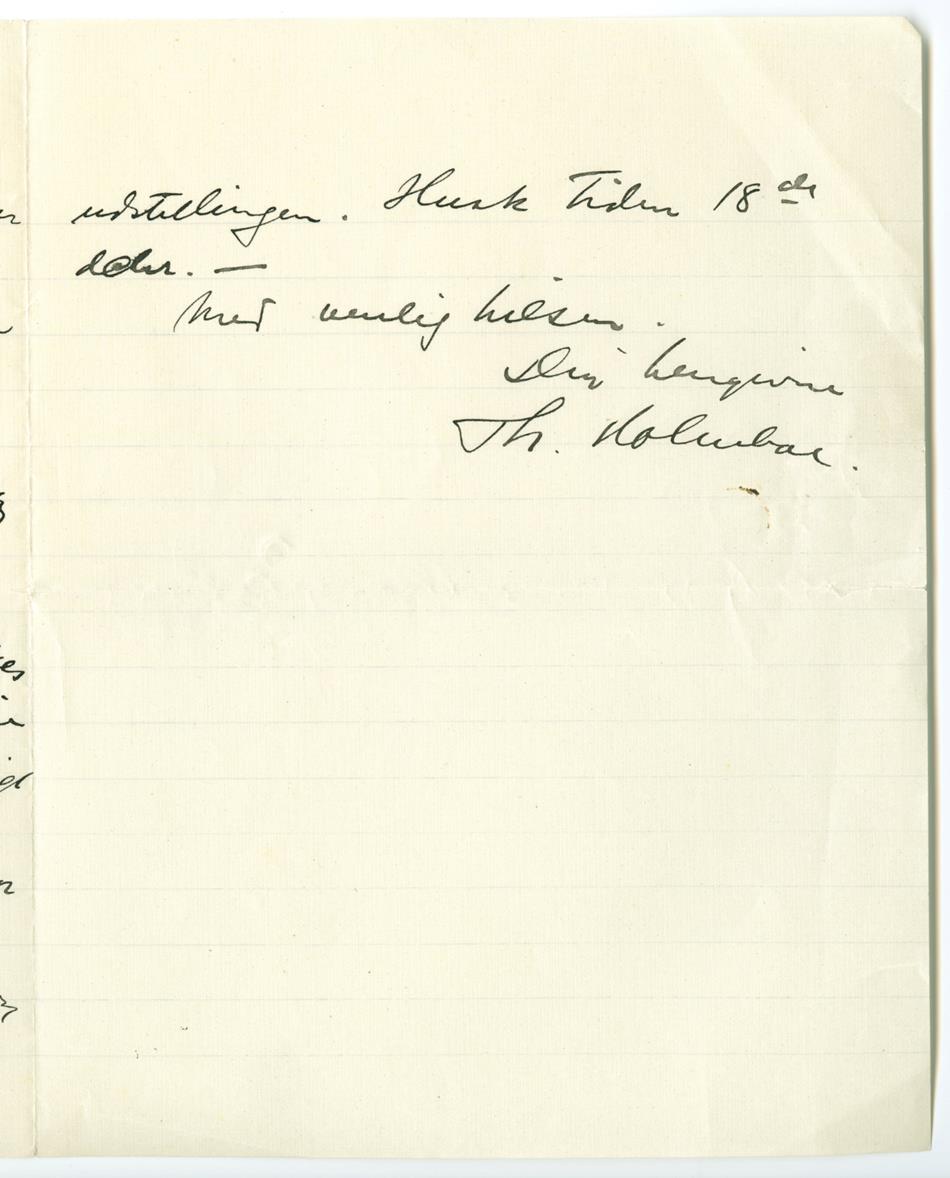 udstillingen. Husk Tiden 18de
ds. —
Med venlig hilsen.
Din hengivne
Th. Holmboe.